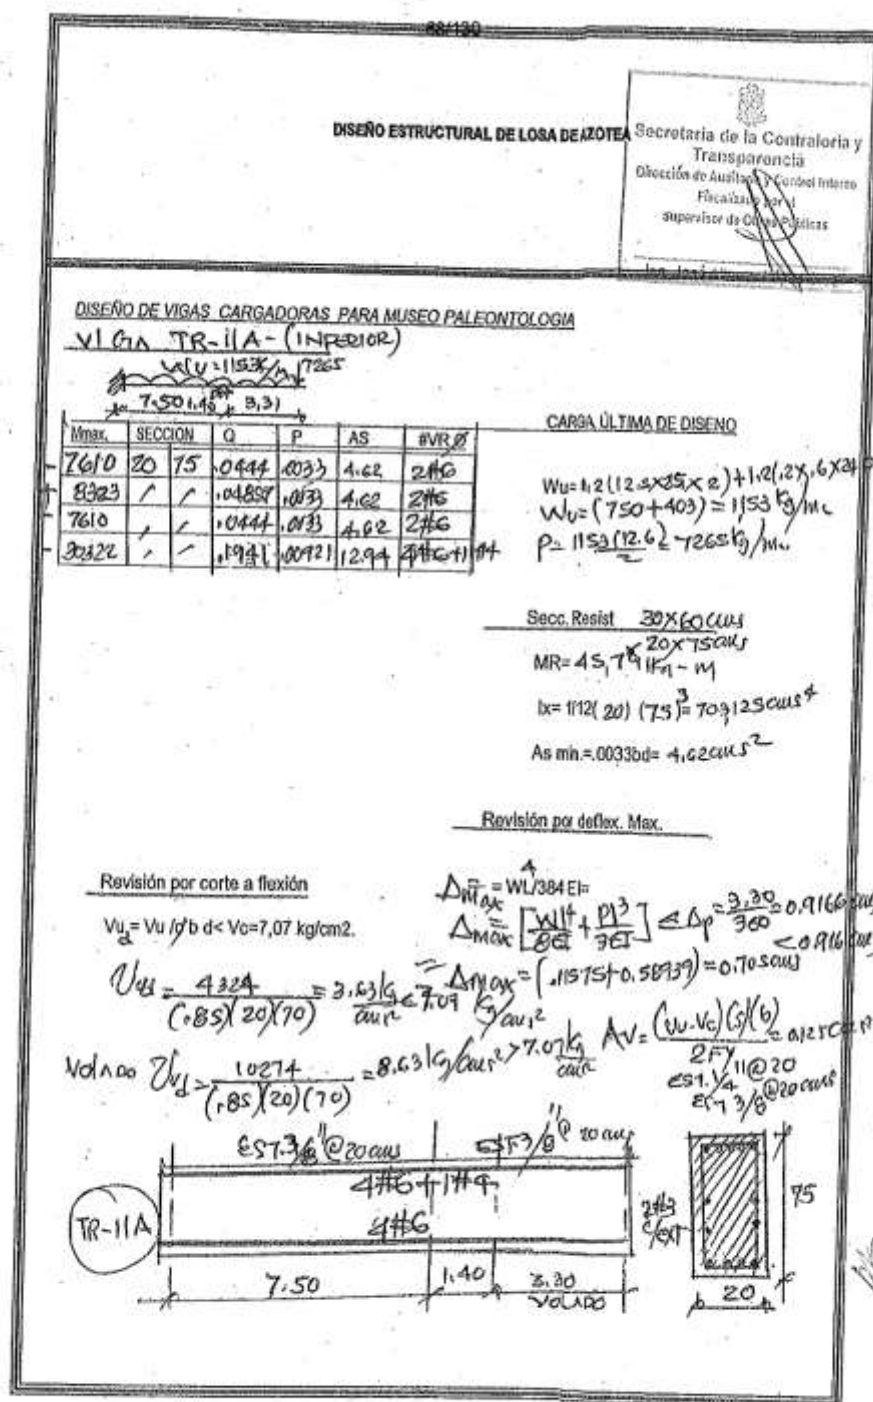 68/130
DISEÑO ESTRUCTURAL DE LOSA DE AZOTEA
Secretaria de la Contraloria y
Transparencia
Dirección de Auditoria y Control Interno
Fiscalizado por el
supervisor de Obras Públicas
Ing. José
DISEÑO DE VIGAS CARGADORAS PARA MUSEO PALEONTOLOGIA
VIGA TR-11A-(INFERIOR)
WU=1153K/M 7265
7.50 1.40 3,31
Mmax. SECCION Q P AS #VR Ø
-7610 20 75 .0444 .0033 4.62 2#6
+ 8323 / / .04857 .0033 4.62 2#6
- 7610 / / .0444 .0033 4.62 2#6
- 30322 / / .1941 .00921 12.94 4#6+1#4
CARGA ÚLTIMA DE DISENO
Wu=1,2(12.5×25×2)+1,2(.2×.6×24
Wu=(750+403)=1,153 kg/m
P=1153(12.6)/2=7265 kg/m
Secc. Resist 30×60 cms
20×75 cms
MR= 45,79 - M
Ix= 1/12(20)(75)³=703,125 cms⁴
As min.=.0033bd= 4,62 cms²
Revisión por deflex. Max.
Revisión por corte a flexión
Δmax = WL⁴/384 EI=
Vud= Vu /ø b d< Vc=7,07 kg/cm2.
Δmax = [Wl⁴/8EI + Pl³/3EI] < Δp=3.30/360=0.9166 cms
Vud = 4324/(.85)(20)(70) = 3.63 kg/cm² < 7.07 kg/cm²
Δmax=(.11575+0.58939)=0.705 cms < 0.916 cms
VOLADO Vud = 10274/(.85)(20)(70) = 8.63 kg/cms² > 7.07 kg/cm²
Av= (Vu-Vc)(s)(b)/2FY = 0.125 cms²
EST. 1/4"@20
EST 3/8"@20 cms
EST.3/8"@20 cms EST 3/8"@20 cms
4#6+1#4
4#6
TR-11A
2#3
C/EXT
75
20
7.50 1.40 3.30
VOLADO